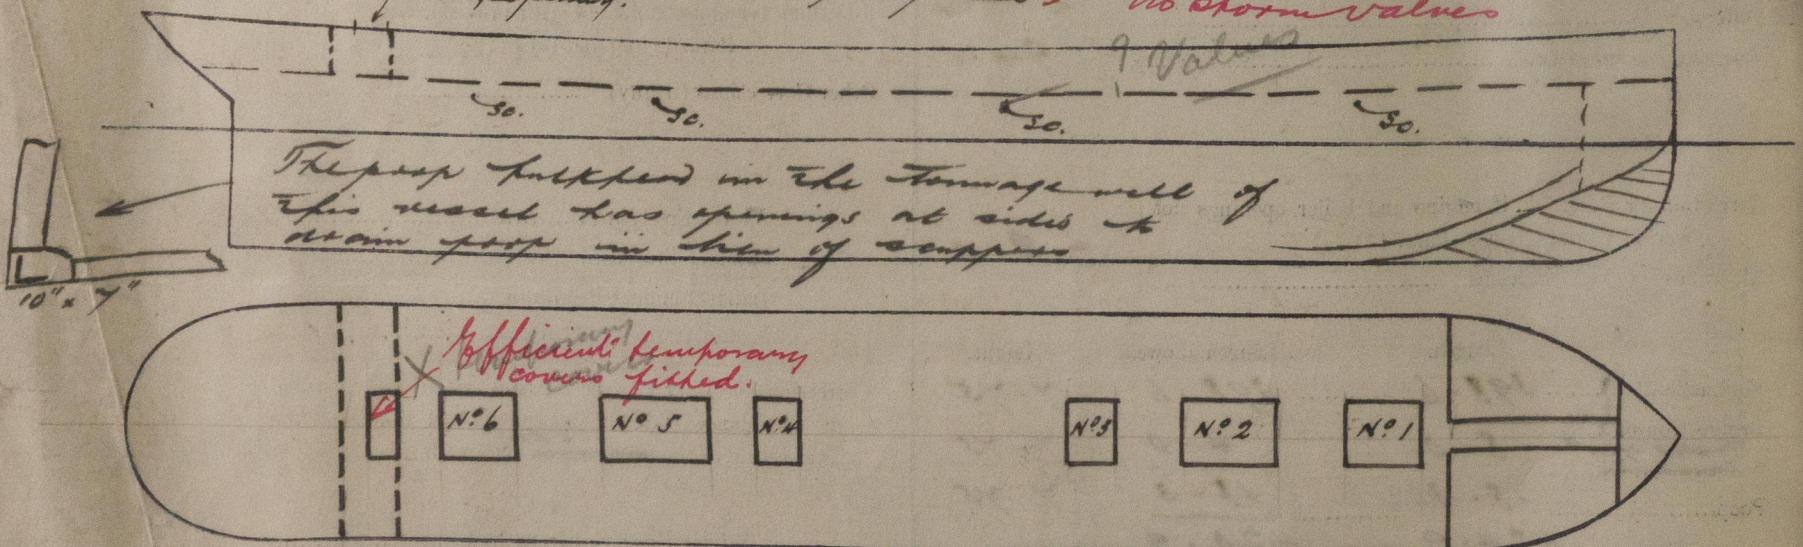 no storm valves
? Valves
sc. sc. sc. sc.
The poop bulkhead in the tonnage well of
this vessel has openings at sides to
drain poop in lieu of scuppers
10" x 7"
Efficient temporary
covers fitted.
No 6 No 5 No 4 No 3 No 2 No 1